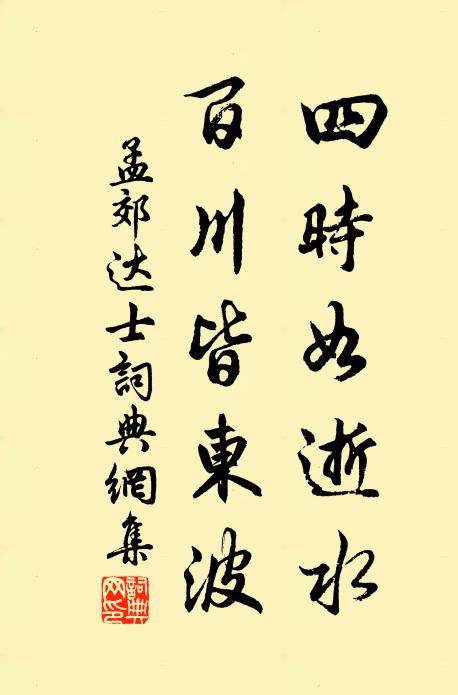 四時如逝水
百川皆東波
孟郊达士詞典網集
詞典網印